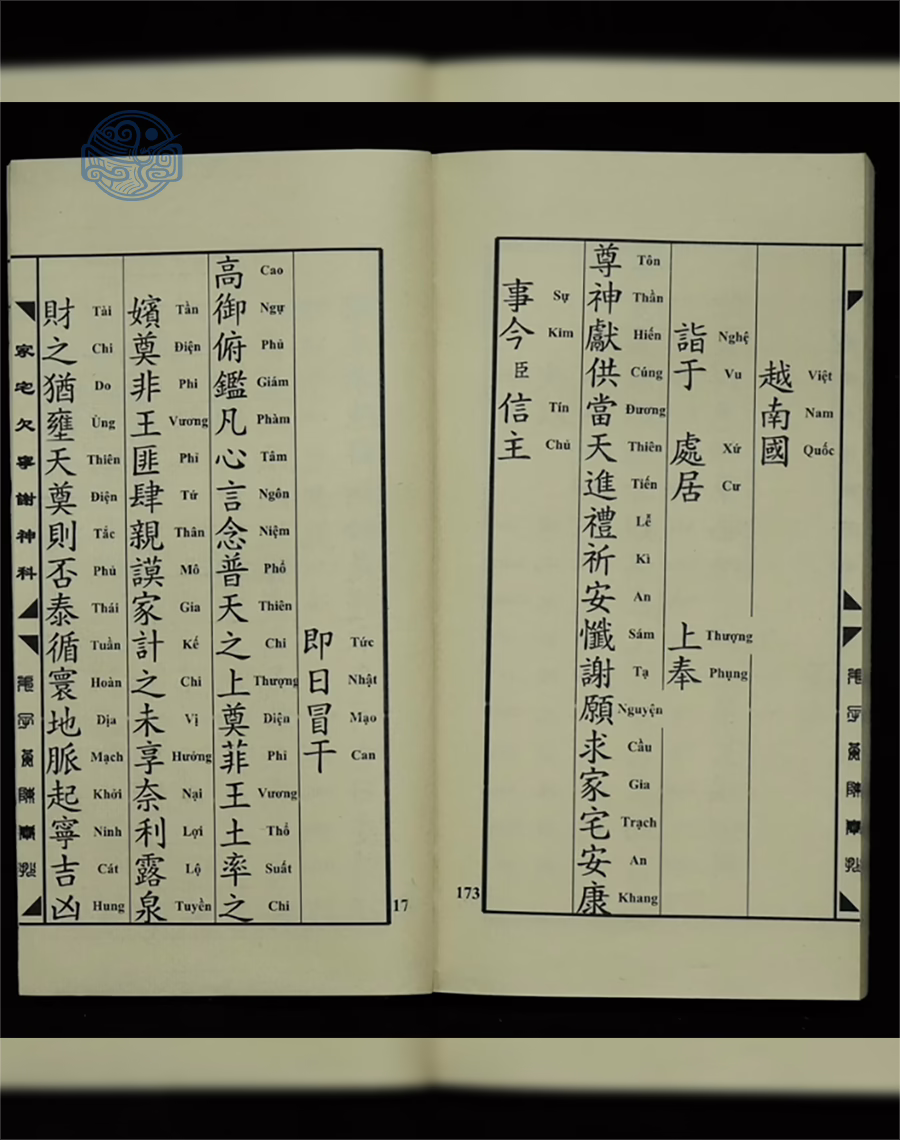 越南國
Việt Nam Quốc
詣于 處居 上奉
Nghệ Vu Xứ Cư Thượng Phụng
尊神獻供當天進禮祈安懺謝願求家宅安康
Tôn Thần Hiến Cúng Đương Thiên Tiến Lễ Kì An Sám Tạ Nguyện Cầu Gia Trạch An Khang
事今臣信主
Sự Kim Tín Chủ
173
即日冒干
Tức Nhật Mạo Can
高御俯鑑凡心言念普天之上奠菲王土率之
Cao Ngự Phủ Giám Phàm Tâm Ngôn Niệm Phổ Thiên Chi Thượng Diện Phi Vương Thổ Suất Chi
嬪奠非王匪肆親謨家計之未享奈利露泉
Tần Điện Phi Vương Phỉ Tứ Thân Mô Gia Kế Chi Vị Hưởng Nại Lợi Lộ Tuyền
財之猶壅天奠則否泰循寰地脈起寧吉凶
Tài Chi Do Ủng Thiên Điện Tắc Phủ Thái Tuần Hoàn Địa Mạch Khởi Ninh Cát Hung
家宅欠寧謝神科
17